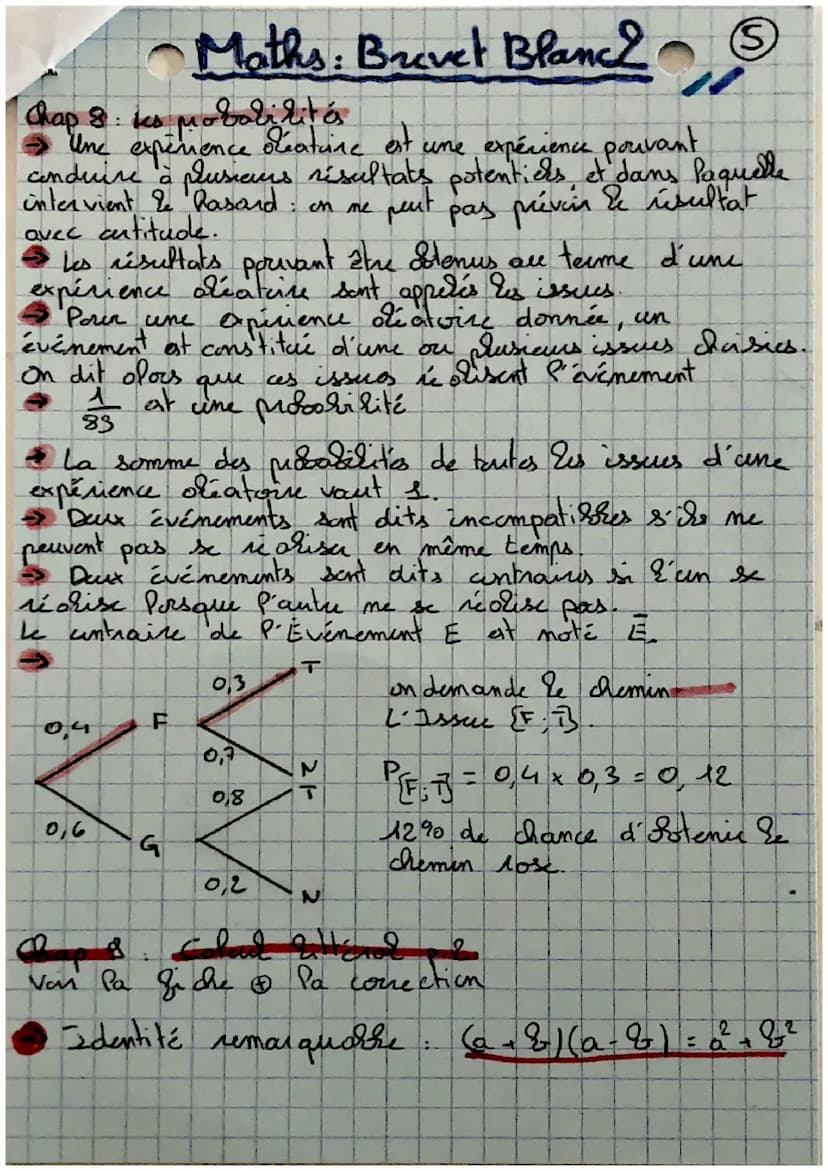 Maths : Brevet Blanc 2
5
Chap 8 : les probabilités
→ Une expérience aléatoire est une expérience pouvant
conduire à plusieurs résultats potentiels, et dans laquelle
intervient le hasard : on ne peut pas prévoir le résultat
avec certitude.
→ Les résultats pouvant être obtenus au terme d'une
expérience aléatoire sont appelés les issues.
→ Pour une expérience aléatoire donnée, un
événement est constitué d'une ou plusieurs issues choisies.
On dit alors que ces issues réalisent l'événement
→ 1/83 est une probabilité
→ La somme des probabilités de toutes les issues d'une
expérience aléatoire vaut 1.
→ Deux événements sont dits incompatibles s'ils ne
peuvent pas se réaliser en même temps.
→ Deux événements sont dits contraires si l'un se
réalise lorsque l'autre ne se réalise pas.
Le contraire de l'Événement E est noté Ē.
→
0,3 T
on demande le chemin
0,4 F
L'Issue {F;T}.
0,7 N
0,8 T
P{F;T} = 0,4 x 0,3 = 0,12
0,6 G
12% de chance d'obtenir le
chemin rose.
0,2 N
Chap 9 : Calcul littéral p.2
Voir la fiche ⊕ la correction
→ Identité remarquable : (a + b)(a - b) = a² + b²